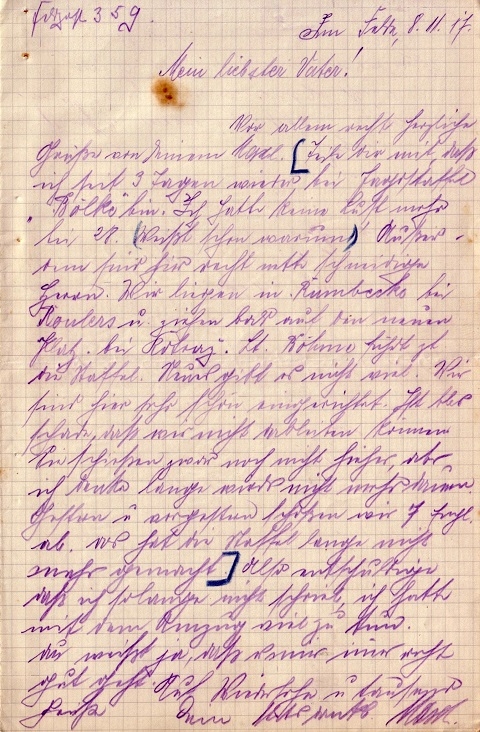 Feldpost 359.
Im Felde, 8. 11. 17.
Mein liebster Vater!
Vor allem recht herzliche
Grüße von deinem Maxl. [Teile dir mit, daß
ich seit 3 Tagen wieder bei Jagdstaffel
"Bölke" bin. Ich hatte keine Lust mehr
bei 27. (Weißt schon warum)! Außer-
dem sind hier recht nette schneidige
Herren. Wir liegen in Rumbecke bei
Roulers u. ziehen bald auf den neuen
Platz. bei. Lt. Böhme führt jetzt
die Staffel. Neues gibt es nicht viel. Wir
sind hier sehr schön eingerichtet. Ist
schade, daß wir nicht bleiben können
Sie schießen zwar noch nicht hieher, aber
ich denke lange wird's nicht mehr dauern.
Gestern u. vorgestern schossen wir 7 Engl.
ab. das hat die Staffel lange nicht
mehr gemacht.] Also entschuldige
daß ich solange nicht schrieb, ich hatte
mit dem Umzug viel zu tun.
du weißt ja, daß es mir recht
gut geht. Auf Wiedersehn u. tausend
Grüße dein Maxl.